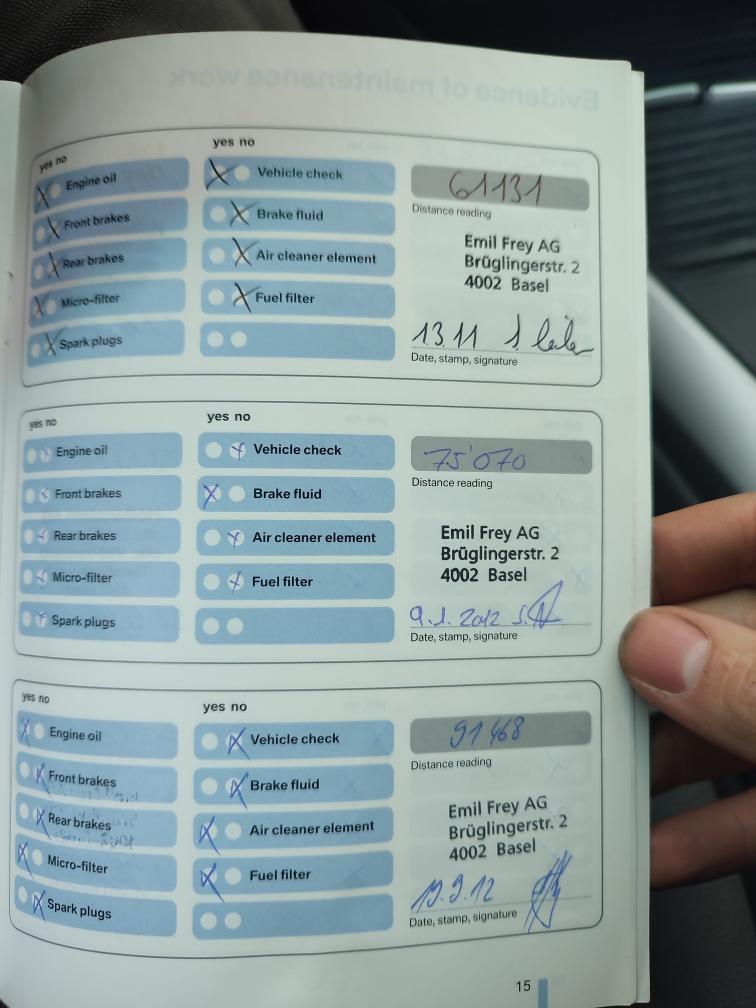 Evidence of maintenance work
yes no
Engine oil
Front brakes
Rear brakes
Micro-filter
Spark plugs
yes no
Vehicle check
Brake fluid
Air cleaner element
Fuel filter
61131
Distance reading
Emil Frey AG
Brüglingerstr. 2
4002 Basel
13.11
Date, stamp, signature
yes no
Engine oil
Front brakes
Rear brakes
Micro-filter
Spark plugs
yes no
Vehicle check
Brake fluid
Air cleaner element
Fuel filter
75'070
Distance reading
Emil Frey AG
Brüglingerstr. 2
4002 Basel
9.1.2012
Date, stamp, signature
yes no
Engine oil
Front brakes
Rear brakes
Micro-filter
Spark plugs
yes no
Vehicle check
Brake fluid
Air cleaner element
Fuel filter
91468
Distance reading
Emil Frey AG
Brüglingerstr. 2
4002 Basel
19.9.12
Date, stamp, signature
15